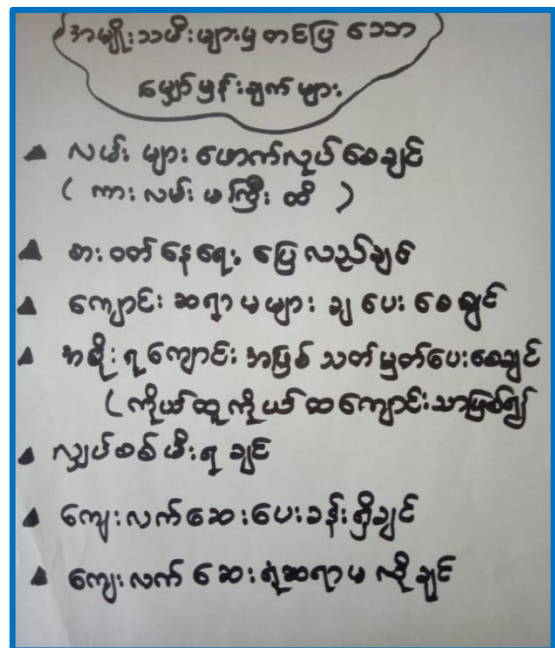 အမျိုးသမီးများမှ တင်ပြ သော
မျှော်မှန်းချက်များ
▲ လမ်း များ ဖောက်လုပ် စေချင်
( ကား လမ်း မကြီး ထိ )
▲ စား ဝတ် နေ ရေး ပြေ လည် ချင်
▲ ကျောင်း ဆရာ မ များ ချ ပေး စေ ချင်
▲ အစိုး ရ ကျောင်း အဖြစ် သတ် မှတ် ပေး စေချင်
( ကိုယ် ထူ ကိုယ် ထ ကျောင်း သာ ဖြစ်၍
▲ လျှပ် စစ် မီး ရ ချင်
▲ ကျေး လက် ဆေး ပေး ခန်း ရှိ ချင်
▲ ကျေး လက် ဆေး ရုံ ဆရာ မ လို ချင်